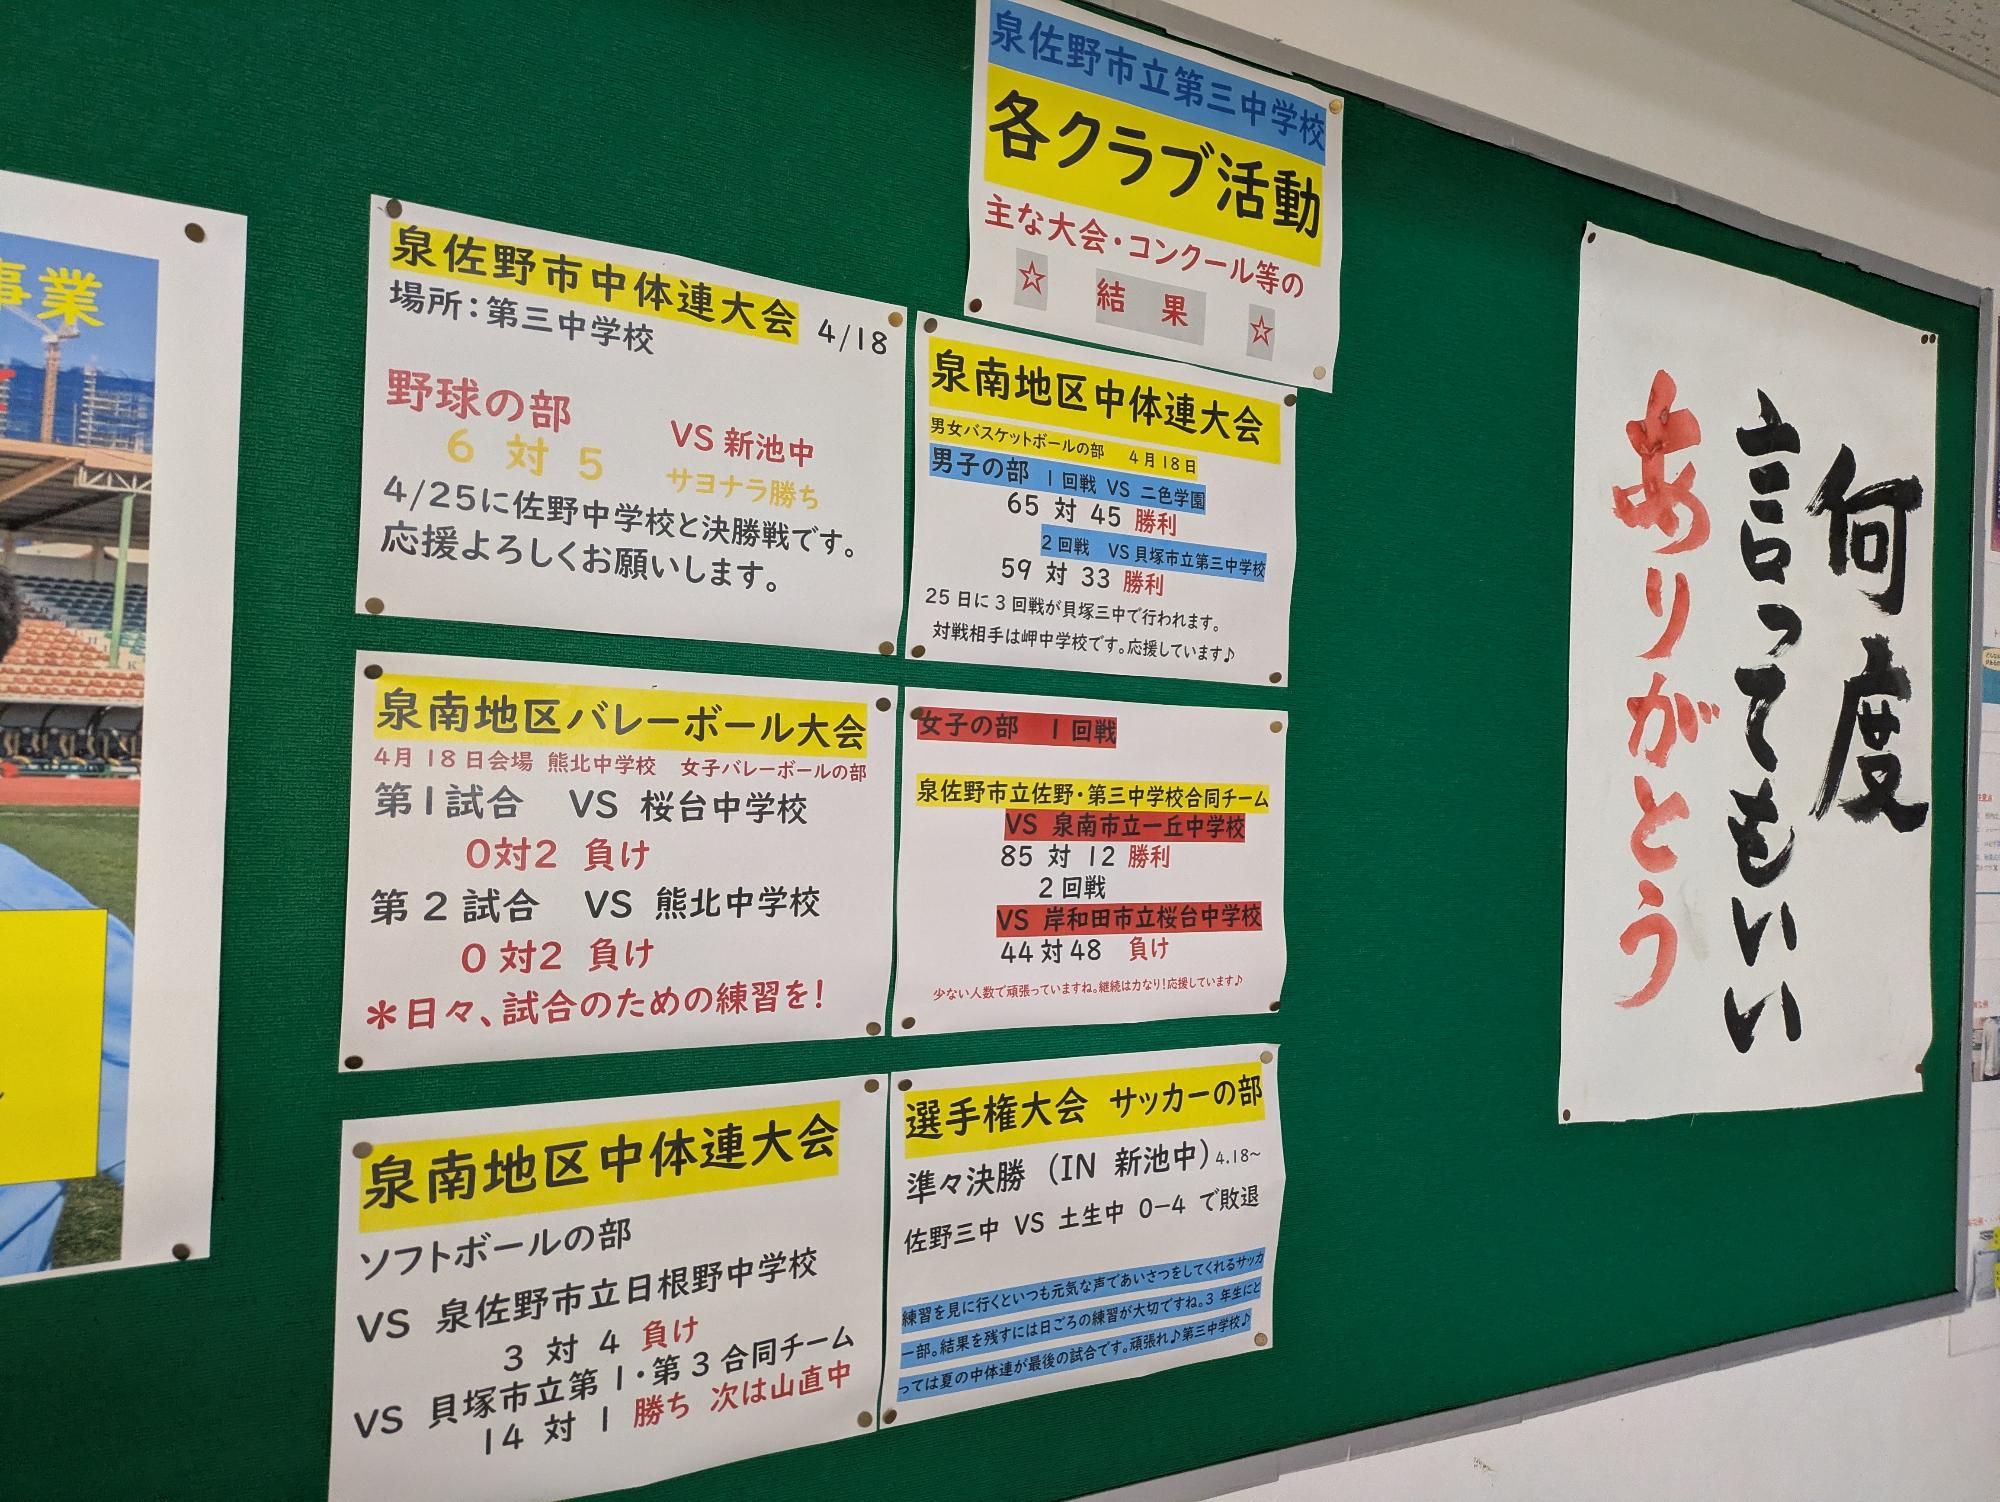 事業
泉佐野市立第三中学校
各クラブ活動
主な大会・コンクール等の
☆ 結 果 ☆
泉佐野市中体連大会 4/18
場所：第三中学校
野球の部 VS 新池中
6 対 5 サヨナラ勝ち
4/25に佐野中学校と決勝戦です。
応援よろしくお願いします。
泉南地区中体連大会
男女バスケットボールの部 4月18日
男子の部 1回戦 VS 二色学園
65 対 45 勝利
2回戦 VS貝塚市立第三中学校
59 対 33 勝利
25日に3回戦が貝塚三中で行われます。
対戦相手は岬中学校です。応援しています♪
泉南地区バレーボール大会
4月18日会場 熊北中学校 女子バレーボールの部
第1試合 VS 桜台中学校
0対2 負け
第2試合 VS 熊北中学校
0対2 負け
＊日々、試合のための練習を！
女子の部 1回戦
泉佐野市立佐野・第三中学校合同チーム
VS 泉南市立一丘中学校
85 対 12 勝利
2回戦
VS 岸和田市立桜台中学校
44対48 負け
少ない人数で頑張っていますね。継続は力なり！応援しています♪
泉南地区中体連大会
ソフトボールの部
VS 泉佐野市立日根野中学校
3 対 4 負け
VS 貝塚市立第1・第3合同チーム
14 対 1 勝ち 次は山直中
選手権大会 サッカーの部
準々決勝（IN 新池中）4.18~
佐野三中 VS 土生中 0−4 で敗退
練習を見に行くといつも元気な声であいさつをしてくれるサッカ
ー部。結果を残すには日ごろの練習が大切ですね。3年生にと
っては夏の中体連が最後の試合です。頑張れ♪第三中学校♪
何度
言ってもいい
ありがとう